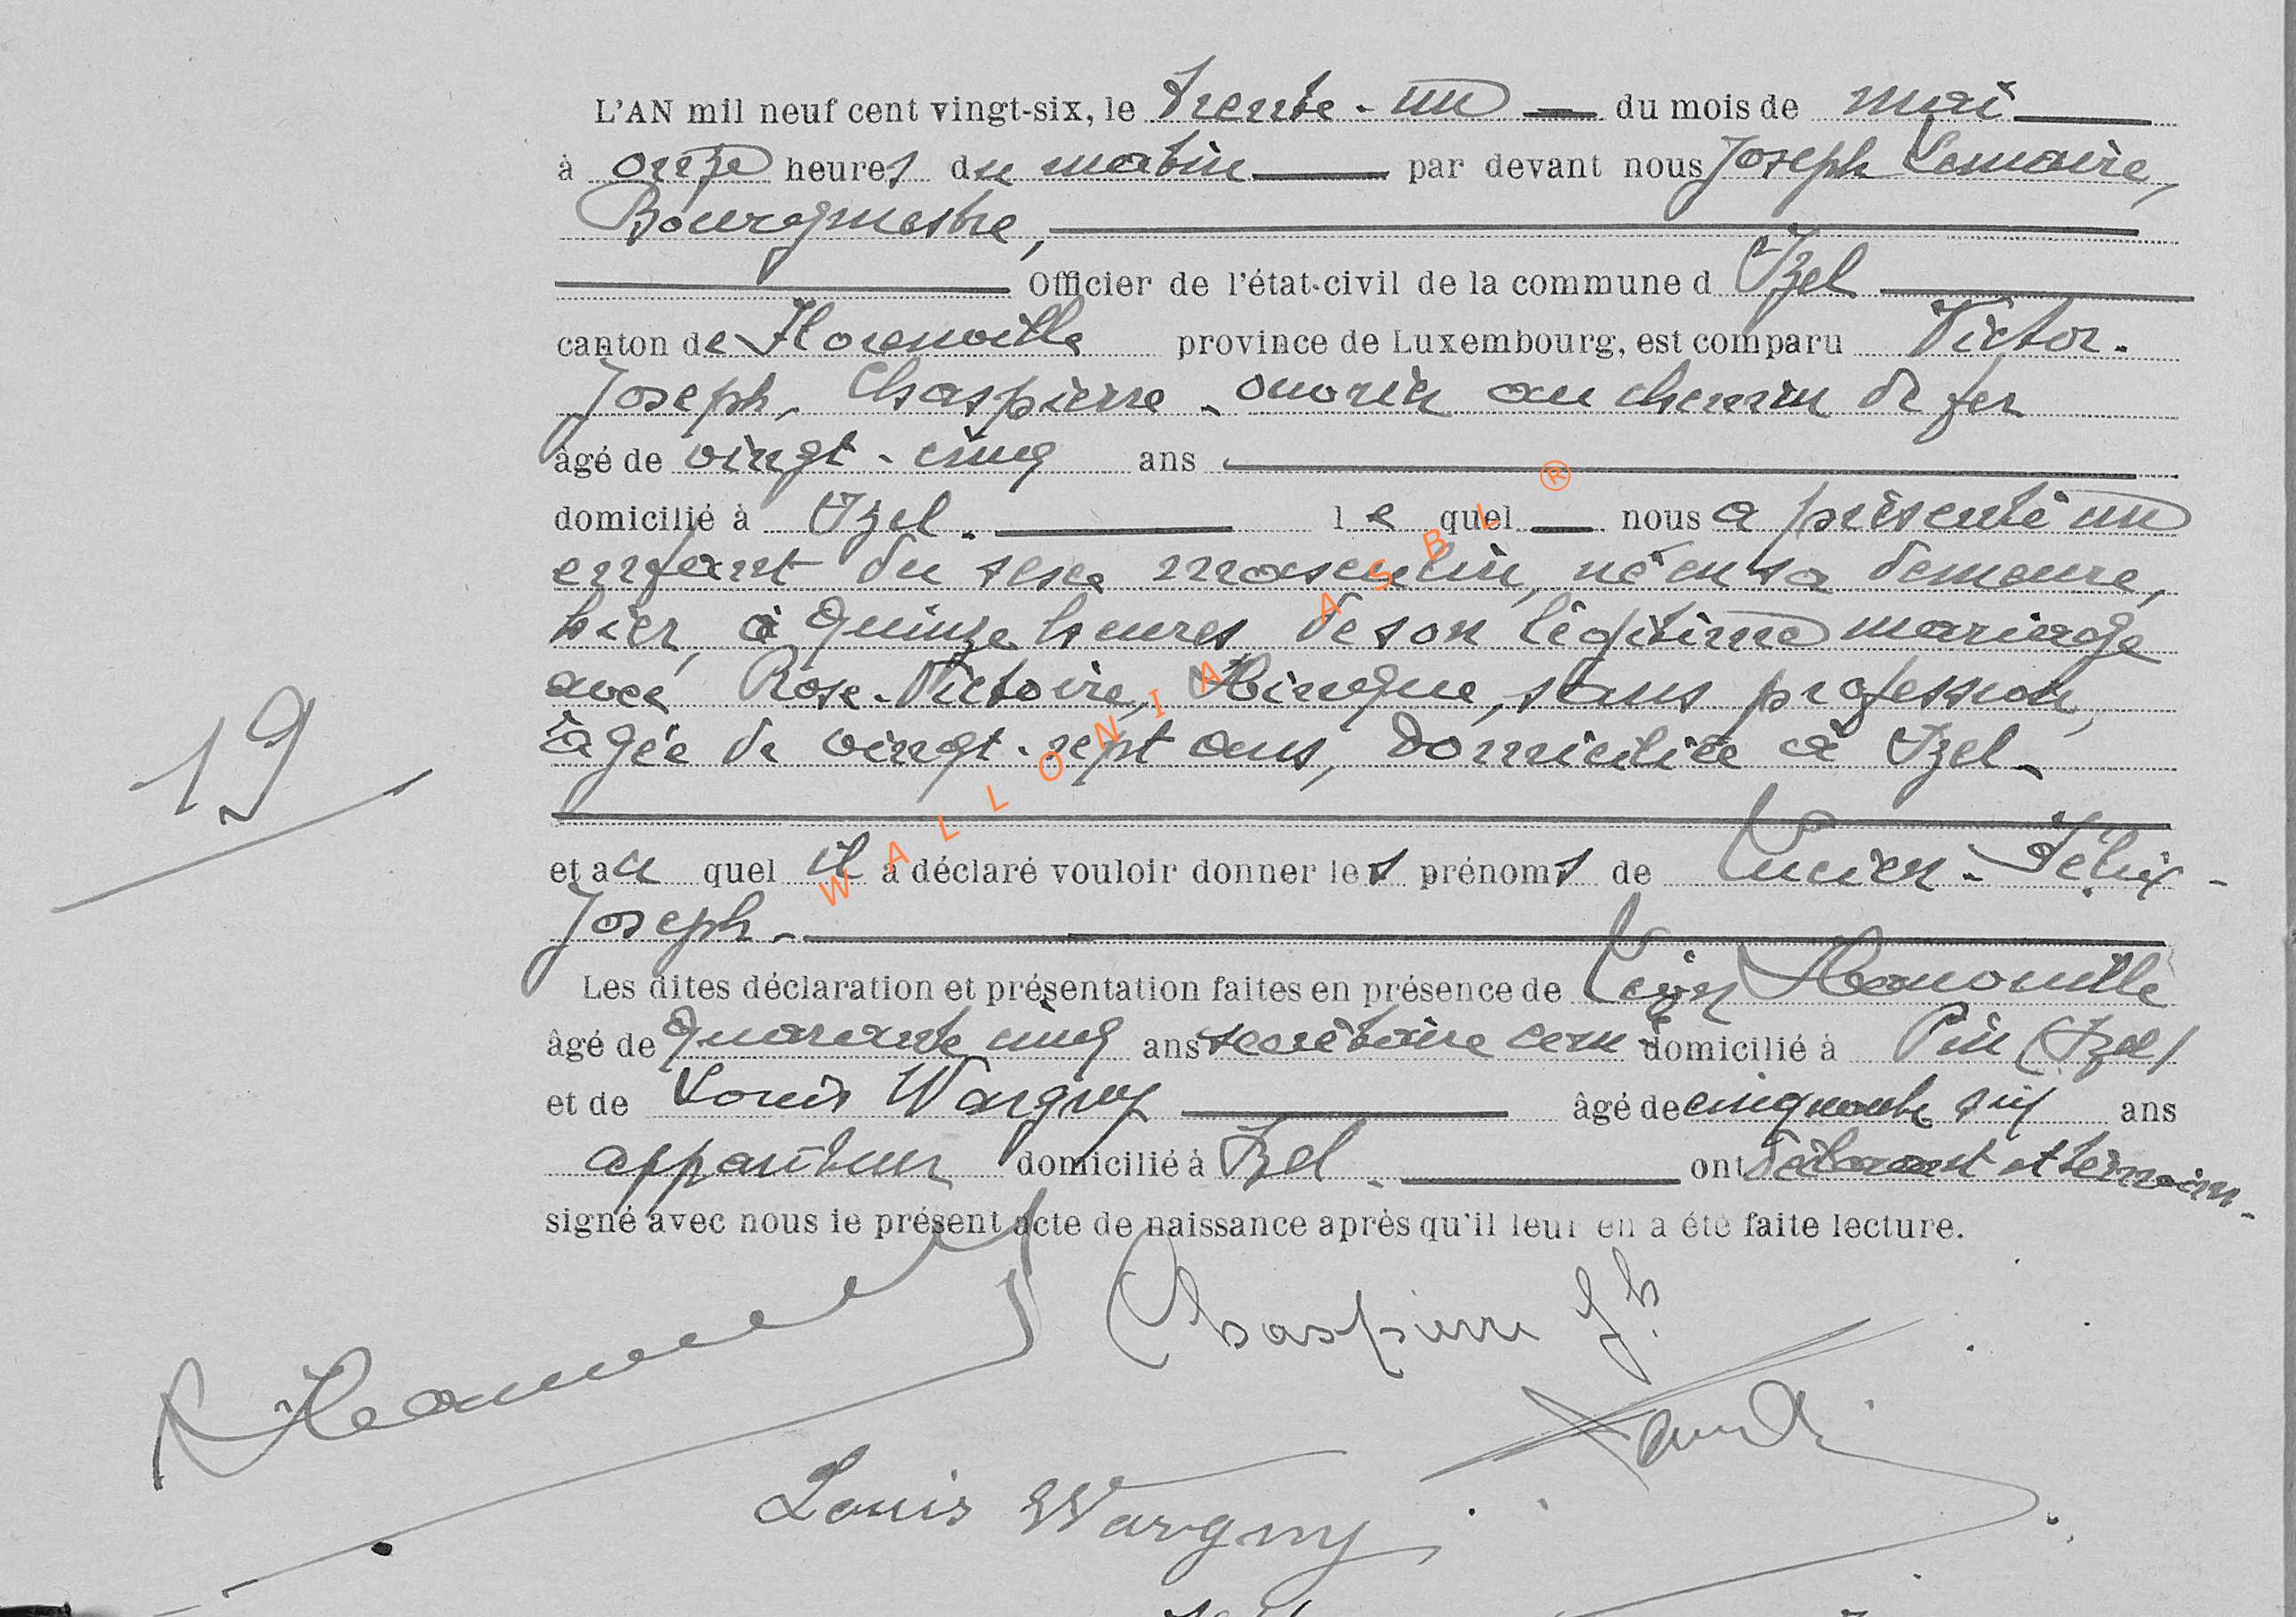 L'AN mil neuf cent vingt-six, le trente-un du mois de mai
à onze heures du matin par devant nous Joseph Lemaire,
Bourgmestre,
Officier de l'état-civil de la commune d Izel
canton de Florenville province de Luxembourg, est comparu Victor-
Joseph, Chaspierre - ouvrier au chemin de fer
âgé de vingt-cinq ans
domicilié à Izel. le quel nous a présenté un
enfant du sexe masculin, né en sa demeure,
hier, à quinze heures, de son légitime mariage
avec Rose-Victoire, sans profession,
âgée de vingt-sept ans, domiciliée à Izel.
19
et au quel il a déclaré vouloir donner les prénoms de Lucien-Félix-
Joseph.
Les dites déclaration et présentation faites en présence de Léon
âgé de quarante cinq ans secrétaire com domicilié à Pin (Izel)
et de Louis Wargny âgé de cinquante six ans
appariteur domicilié à Izel. ont déclarant et témoin.
signé avec nous le présent acte de naissance après qu'il leur en a été faite lecture.
Chaspierre Jh
Louis Wargny
WALLONIA ASBL ®